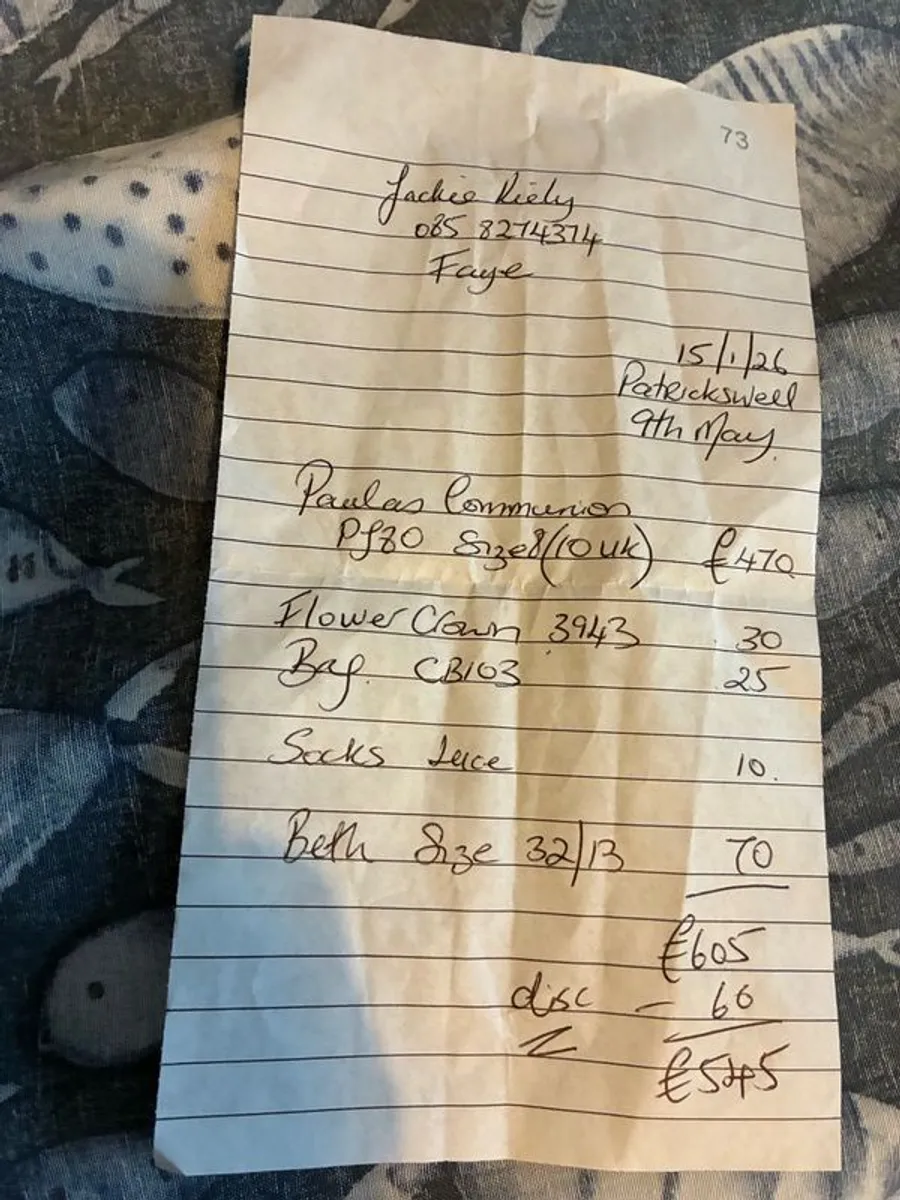 73
Jackie Kiely
085 8274374
Faye
15/1/26
Patrickswell
9th May.
Paulas Communion
Pf80 Size 8 (10 UK) £470
Flower Crown 3943 30
Bag. CB103 25
Socks Lace 10.
Beth Size 32/13 70
£605
disc - 60
£545